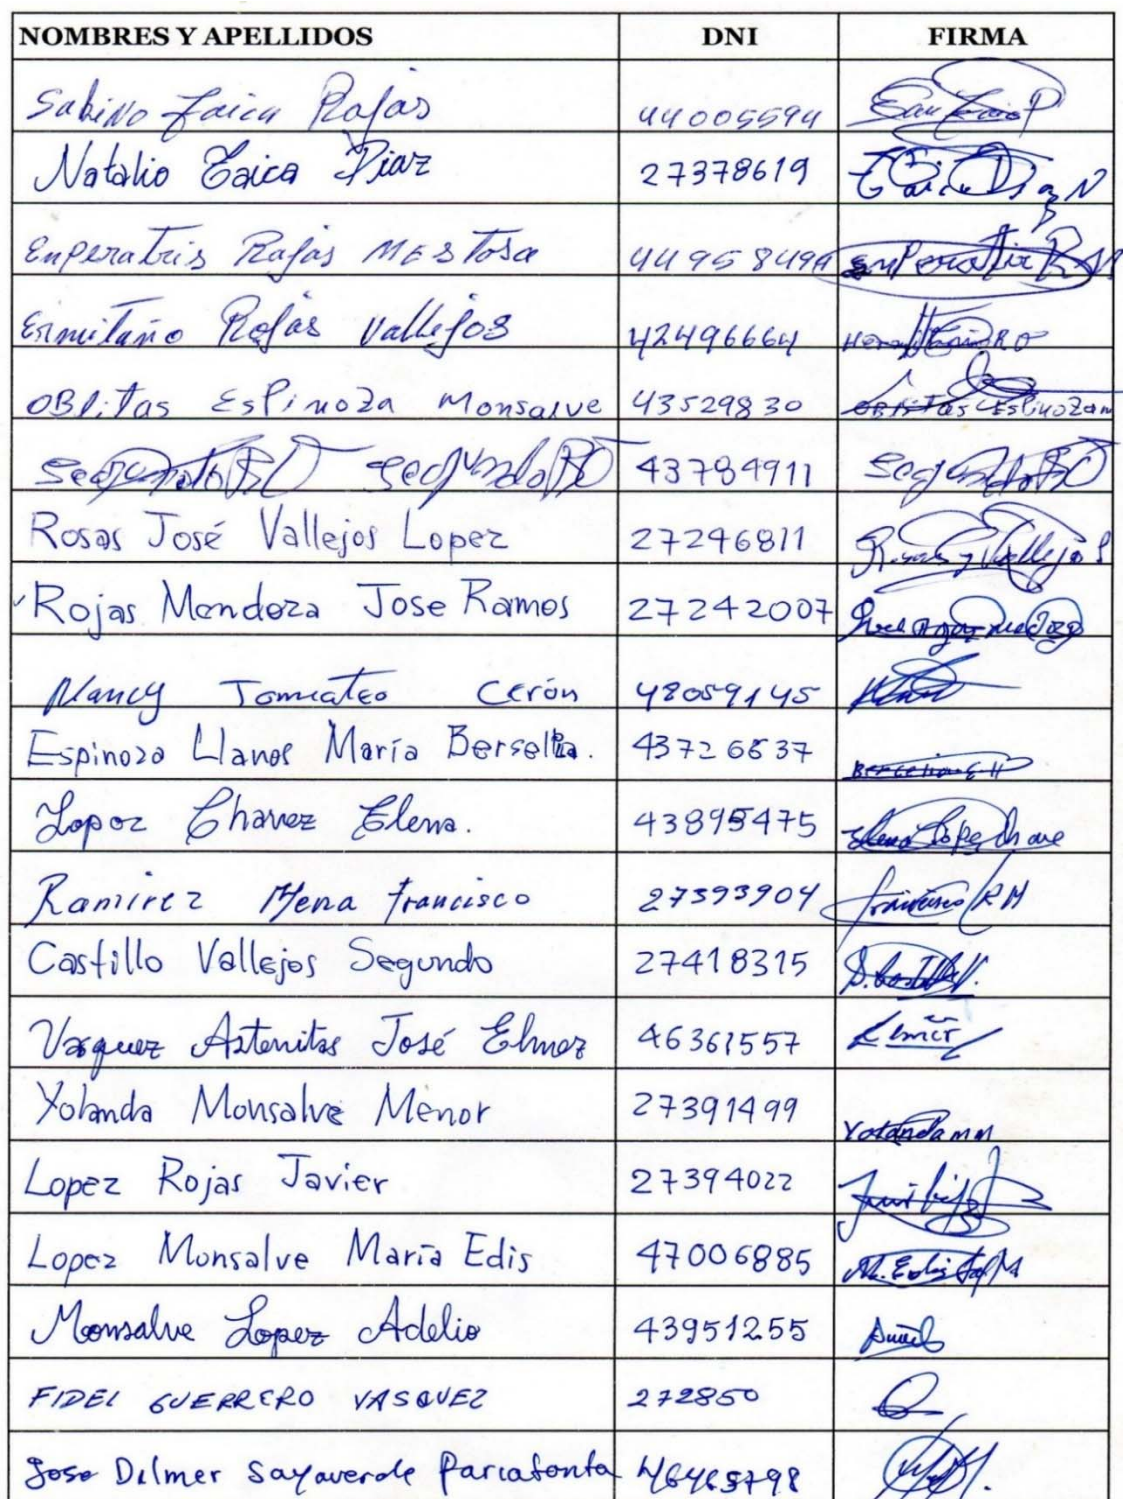 NOMBRES Y APELLIDOS DNI FIRMA
Sabino Taica Rojas 44005594
Natalio Taica Diaz 27378619
Enperatris Rojas MESTosa 44958494
Ermitaño Rojas Vallejos 42496664
OBlitas EsPinoza Monsalve 43529830 OBlitas Espinozam
Segundo BD 43784911 Segundo BD
Rosas José Vallejos Lopez 27246811
Rojas Mendoza Jose Ramos 27242007
Nancy Tomiateo Cerón 48059145
Espinoza Llanos María 43726637
Lopoz Chavez Elena. 43895475 Elena Lope Chave
Ramirez Mena Francisco 27393904 Francisco RM
Castillo Vallejos Segundo 27418315
Vasquez Astonitas José Elmer 46361557 Elmer
Yolanda Monsalve Menor 27391499 Yolanda MM
Lopez Rojas Javier 27394022
Lopez Monsalve María Edis 47006885 M. Edis
Monsalve Lopez Adelio 43951255
FIDEL GUERRERO VASQUEZ 272850
Jose Delmer Sayaverde 46465798